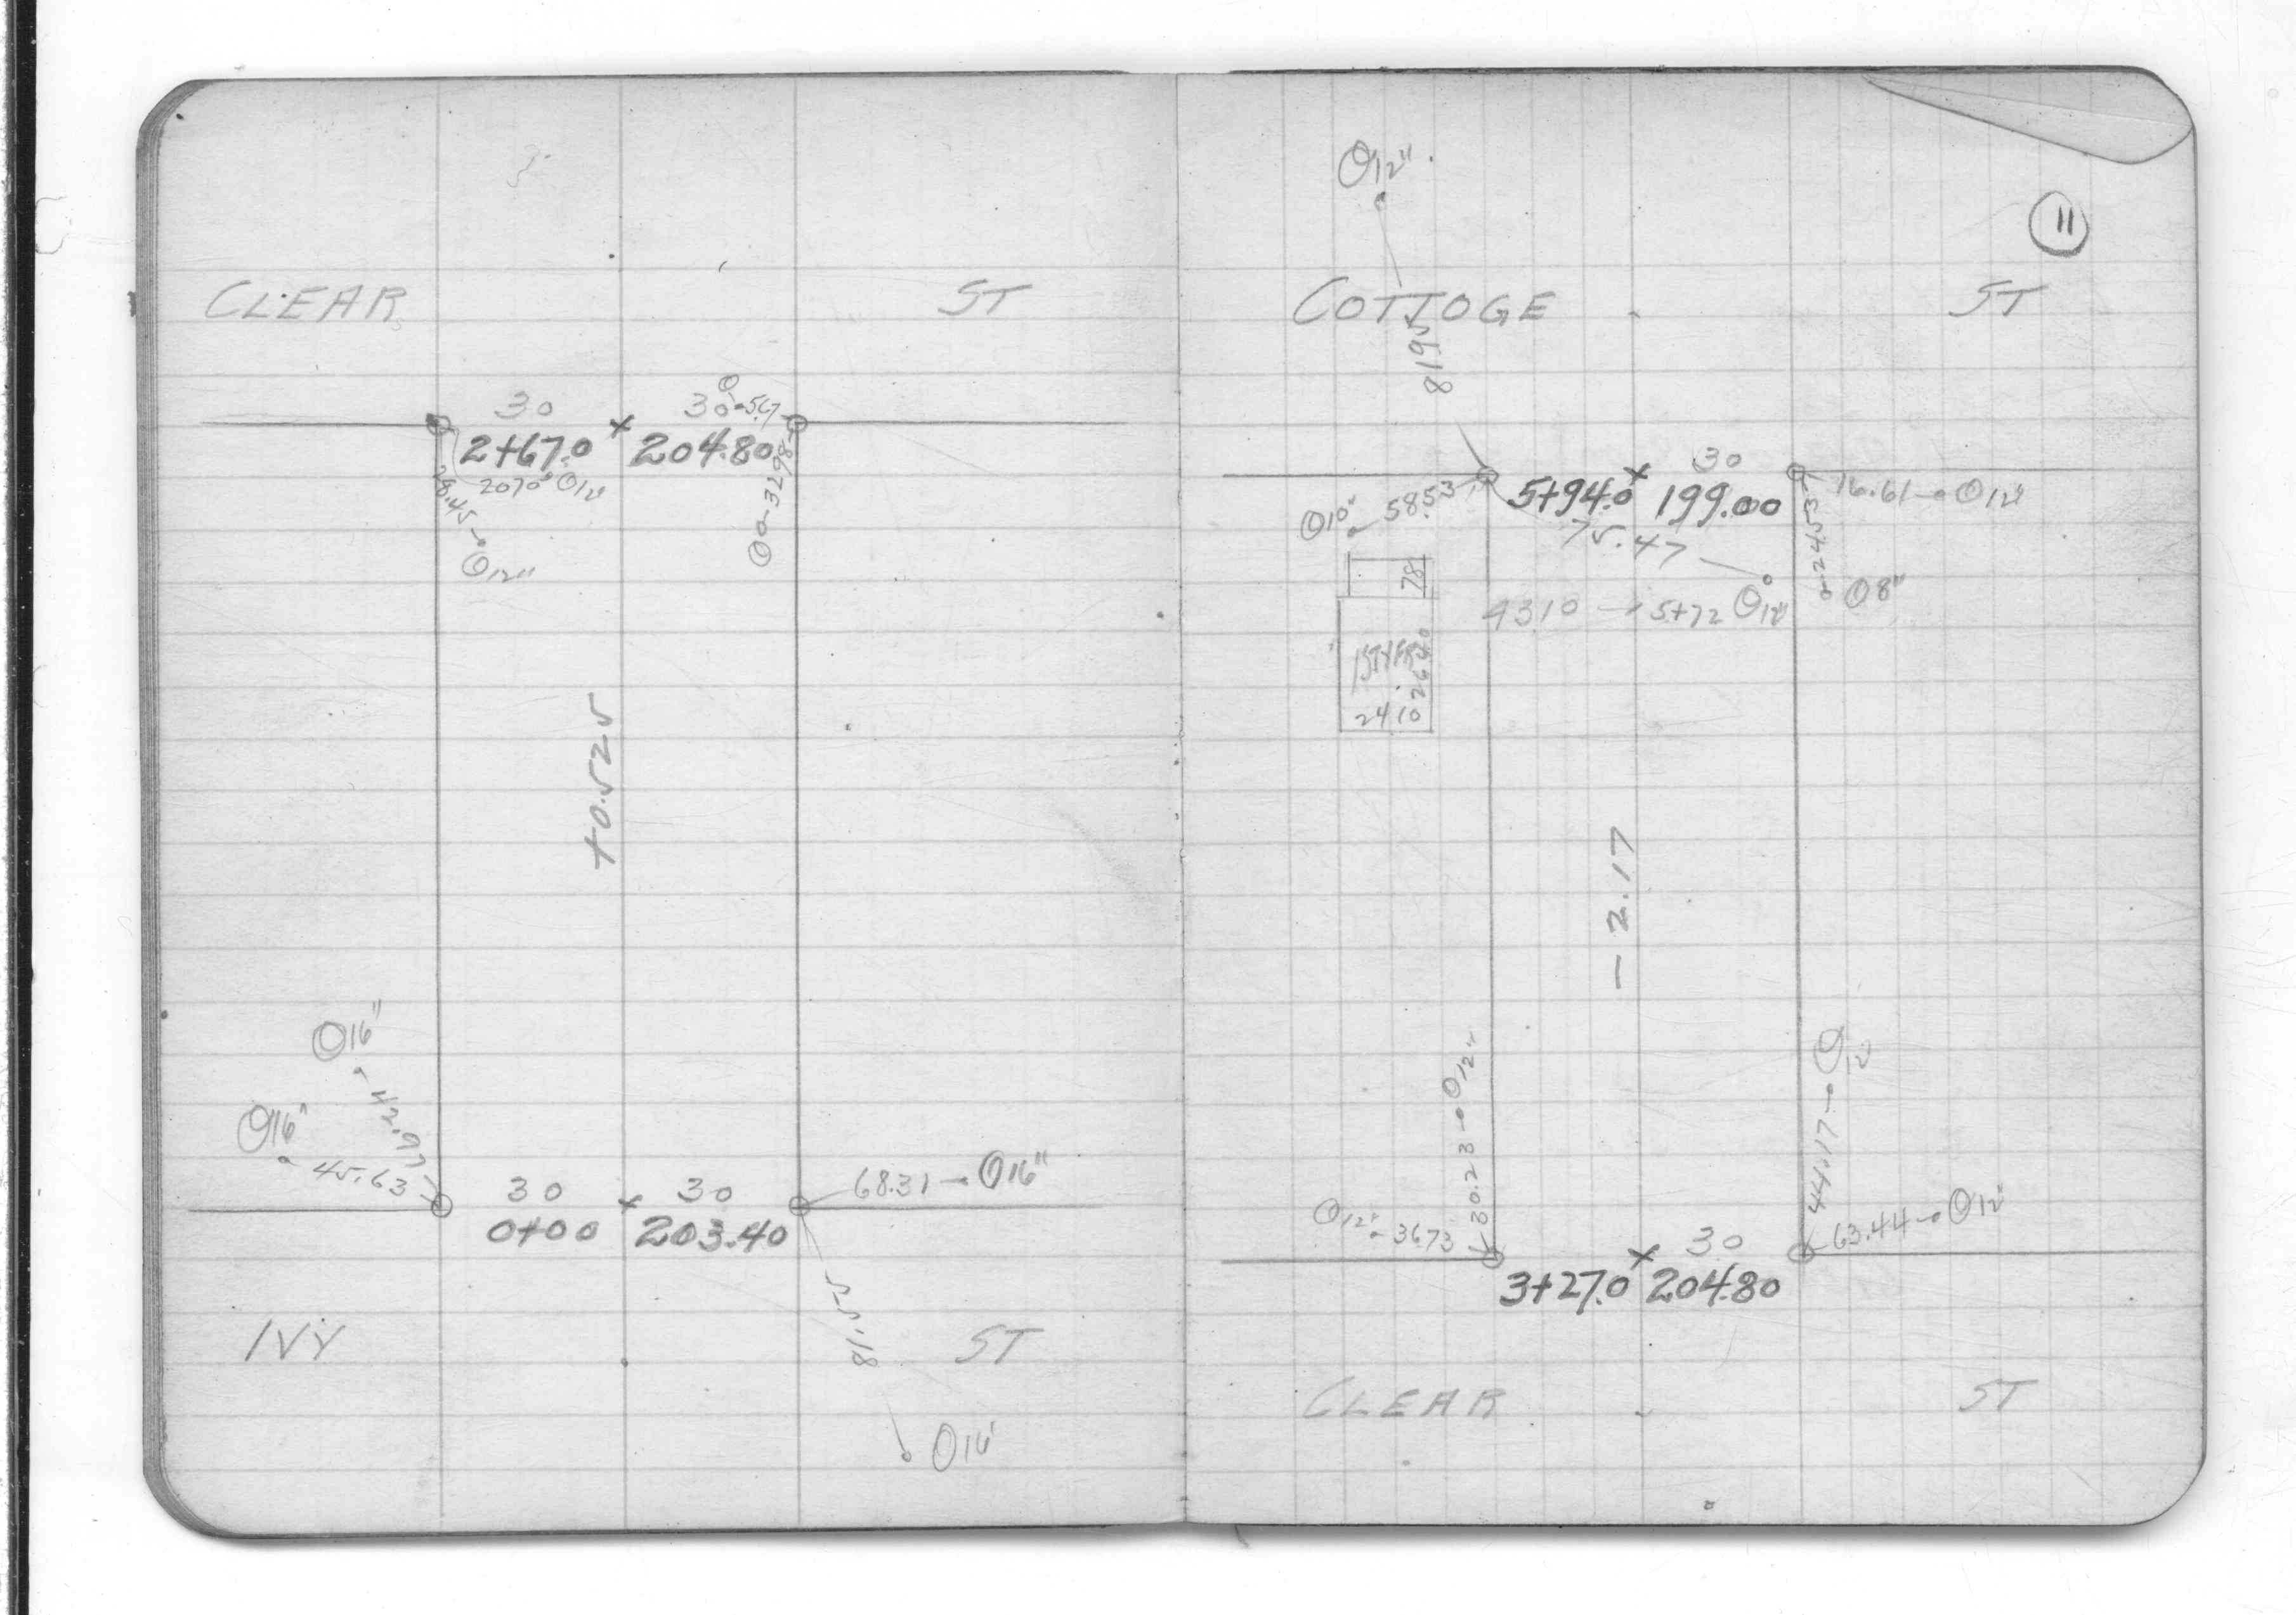 CLEAR ST
30 30 5.67
2+67.0 204.80
28.45 20.70 12"
32.98
12"
+0.525
16"
42.97
16"
45.63
30 30 68.31 16"
0+00 203.40
81.55
IVY ST
16"
12"
11
COTTOGE ST
81.95
30
10" 58.53 5+94.0 199.00 16.61 12"
75.47 24.53
78
43.10 5+72 12" 8"
1 STY FR
26.40
24.10
-2.17
12"
30.23
12"
44.17
12" 36.73 30 63.44 12"
3+27.0 204.80
CLEAR ST